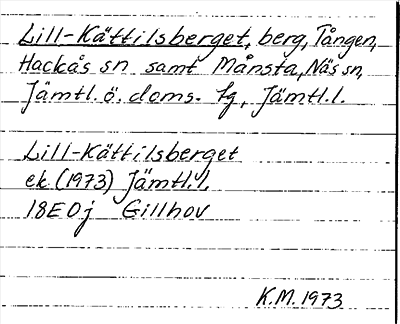 Lill-Kättilsberget, berg, Tången,
Hackås sn samt Månsta, Näs sn,
Jämtl. ö. doms. tg, Jämtl. l.
Lill-Kättilsberget
ek. (1973) Jämtl. l.
18E0j Gillhov
K.M. 1973